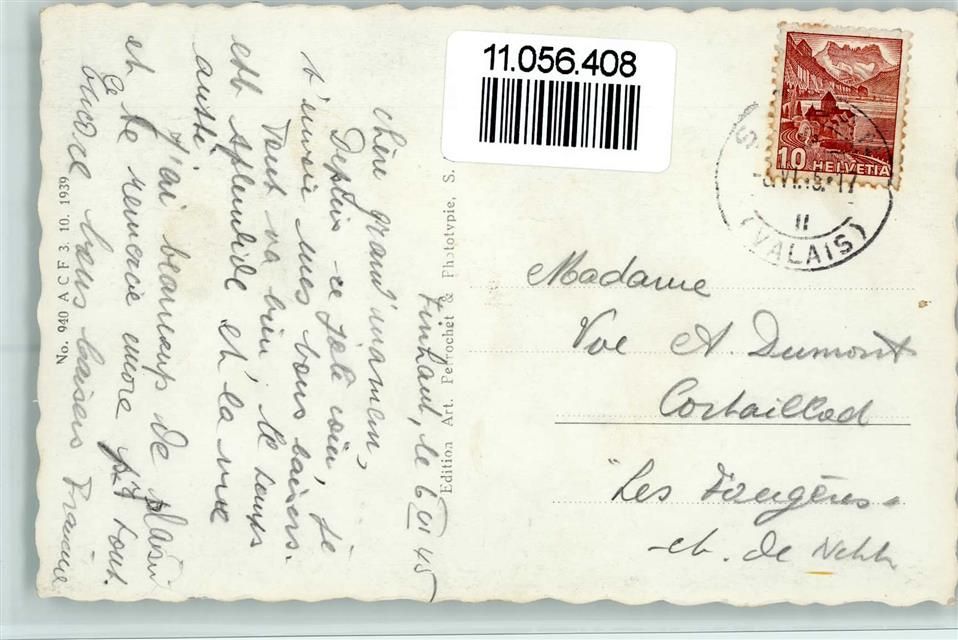 11.056.408
10 HELVETIA
VI. 45.-17
II
(VALAIS)
Finhaut, le 6 VI 45
chère grand'maman,
Depuis ce joli coin, je
t'envoie mes bons baisers.
Tout va bien, le temps
est splendide et la vue
aussi.
J'ai beaucoup de plaisir
et te remercie encore pr tout.
encore bons baisers
Madame
Vve A. Dumont
Cortaillod
"Les Fougères"
ct. de Nchtl
Edition Art. Perrochet & Phototypie, S.
No. 940 A C F 3. 10. 1939